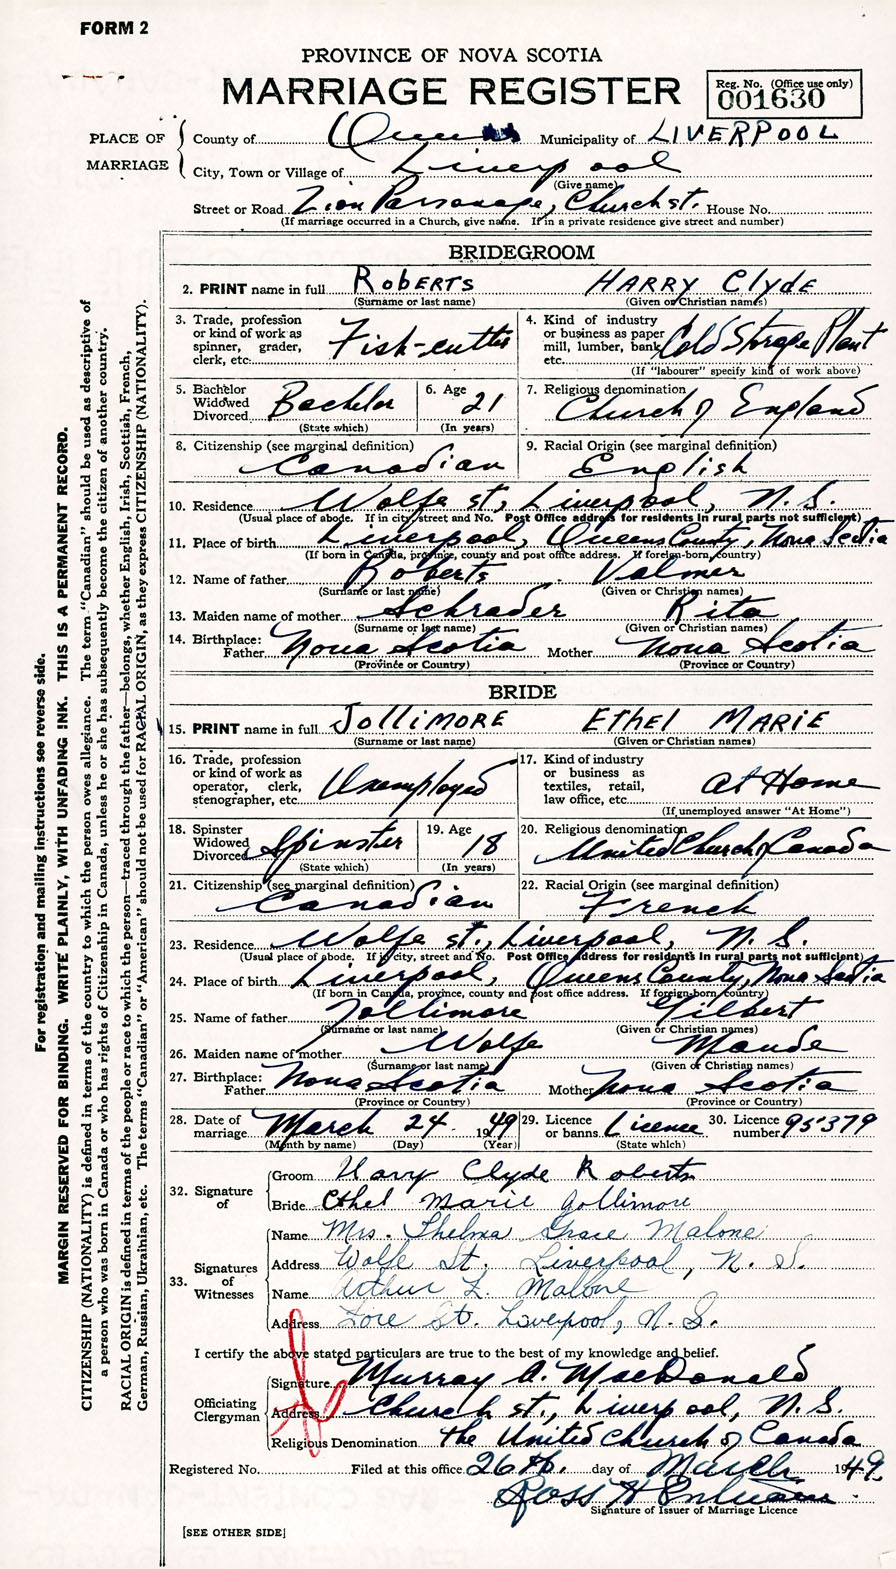 FORM 2
PROVINCE OF NOVA SCOTIA
MARRIAGE REGISTER
Reg. No. (Office use only)
001630
PLACE OF MARRIAGE
County of Queens Municipality of LIVERPOOL
City, Town or Village of Liverpool
(Give name)
Street or Road Zion Parsonage, Church st. House No.
(If marriage occurred in a Church, give name. If in a private residence give street and number)
BRIDEGROOM
2. PRINT name in full ROBERTS HARRY ClydE
(Surname or last name) (Given or Christian names)
3. Trade, profession or kind of work as spinner, grader, clerk, etc. Fish-cutter
4. Kind of industry or business as paper mill, lumber, bank, etc. Cold Storage Plant
(If "labourer" specify kind of work above)
5. Bachelor Widowed Divorced Bachelor
(State which)
6. Age 21
(In years)
7. Religious denomination Church of England
8. Citizenship (see marginal definition) Canadian
9. Racial Origin (see marginal definition) English
10. Residence Wolfe st., Liverpool, N. S.
(Usual place of abode. If in city, street and No. Post Office address for residents in rural parts not sufficient)
11. Place of birth Liverpool, Queens County, Nova Scotia
(If born in Canada, province, county and post office address. If foreign-born, country)
12. Name of father Roberts Valmer
(Surname or last name) (Given or Christian names)
13. Maiden name of mother Schrader Rita
(Surname or last name) (Given or Christian names)
14. Birthplace: Father Nova Scotia Mother Nova Scotia
(Province or Country) (Province or Country)
BRIDE
15. PRINT name in full JOLLIMORE EThEl MARiE
(Surname or last name) (Given or Christian names)
16. Trade, profession or kind of work as operator, clerk, stenographer, etc. Unemployed
17. Kind of industry or business as textiles, retail, law office, etc. At Home
(If unemployed answer "At Home")
18. Spinster Widowed Divorced Spinster
(State which)
19. Age 18
(In years)
20. Religious denomination United Church of Canada
21. Citizenship (see marginal definition) Canadian
22. Racial Origin (see marginal definition) French
23. Residence Wolfe st., Liverpool, N. S.
(Usual place of abode. If in city, street and No. Post Office Address for residents in rural parts not sufficient)
24. Place of birth Liverpool, Queens County, Nova Scotia
(If born in Canada, province, county and post office address. If foreign-born, country)
25. Name of father Jollimore Gilbert
(Surname or last name) (Given or Christian names)
26. Maiden name of mother Wolfe Maude
(Surname or last name) (Given or Christian names)
27. Birthplace: Father Nova Scotia Mother Nova Scotia
(Province or Country) (Province or Country)
28. Date of marriage March 24 1949
(Month by name) (Day) (Year)
29. Licence or banns Licence
(State which)
30. Licence number 95379
32. Signature of
Groom Harry Clyde Roberts
Bride Ethel Marie Jollimore
33. Signatures of Witnesses
Name Mrs. Thelma Grace Malone
Address Wolfe St. Liverpool, N. S.
Name Arthur L. Malone
Address St. Liverpool, N. S.
I certify the above stated particulars are true to the best of my knowledge and belief.
Officiating Clergyman
Signature Murray A. MacDonald
Address Church st., Liverpool, N. S.
Religious Denomination the United Church of Canada
Registered No. Filed at this office 26th. day of March 1949.
Ross H
Signature of Issuer of Marriage Licence
[SEE OTHER SIDE]
For registration and mailing instructions see reverse side.
MARGIN RESERVED FOR BINDING. WRITE PLAINLY, WITH UNFADING INK. THIS IS A PERMANENT RECORD.
CITIZENSHIP (NATIONALITY) is defined in terms of the country to which the person owes allegiance. The term "Canadian" should be used as descriptive of
a person who was born in Canada or who has rights of Citizenship in Canada, unless he or she has subsequently become the citizen of another country.
RACIAL ORIGIN is defined in terms of the people or race to which the person—traced through the father—belongs, whether English, Irish, Scottish, French,
German, Russian, Ukrainian, etc. The terms "Canadian" or "American" should not be used for RACIAL ORIGIN, as they express CITIZENSHIP (NATIONALITY).